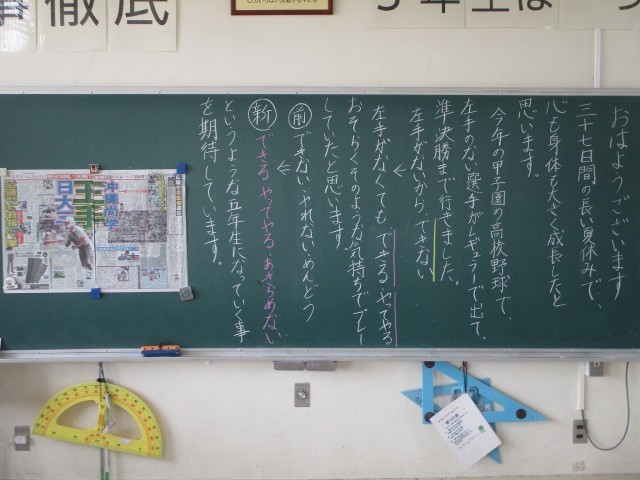 おはようございます
三十七日間の長い夏休みで、
心も身体も大きく成長したと
思います。
今年の甲子園の高校野球で、
左手のない選手がレギュラーで出て、
準決勝まで行きました。
左手がないから、できない
↓
左手がなくても、できる やってやる
おそらくそのような気持ちでプレー
していたと思います。
前 できない、やれない、めんどう
↓
新 できる やってやる あきらめない
というような五年生になっていく事
を期待しています。
徹底
5年生は
沖縄尚学
日大三